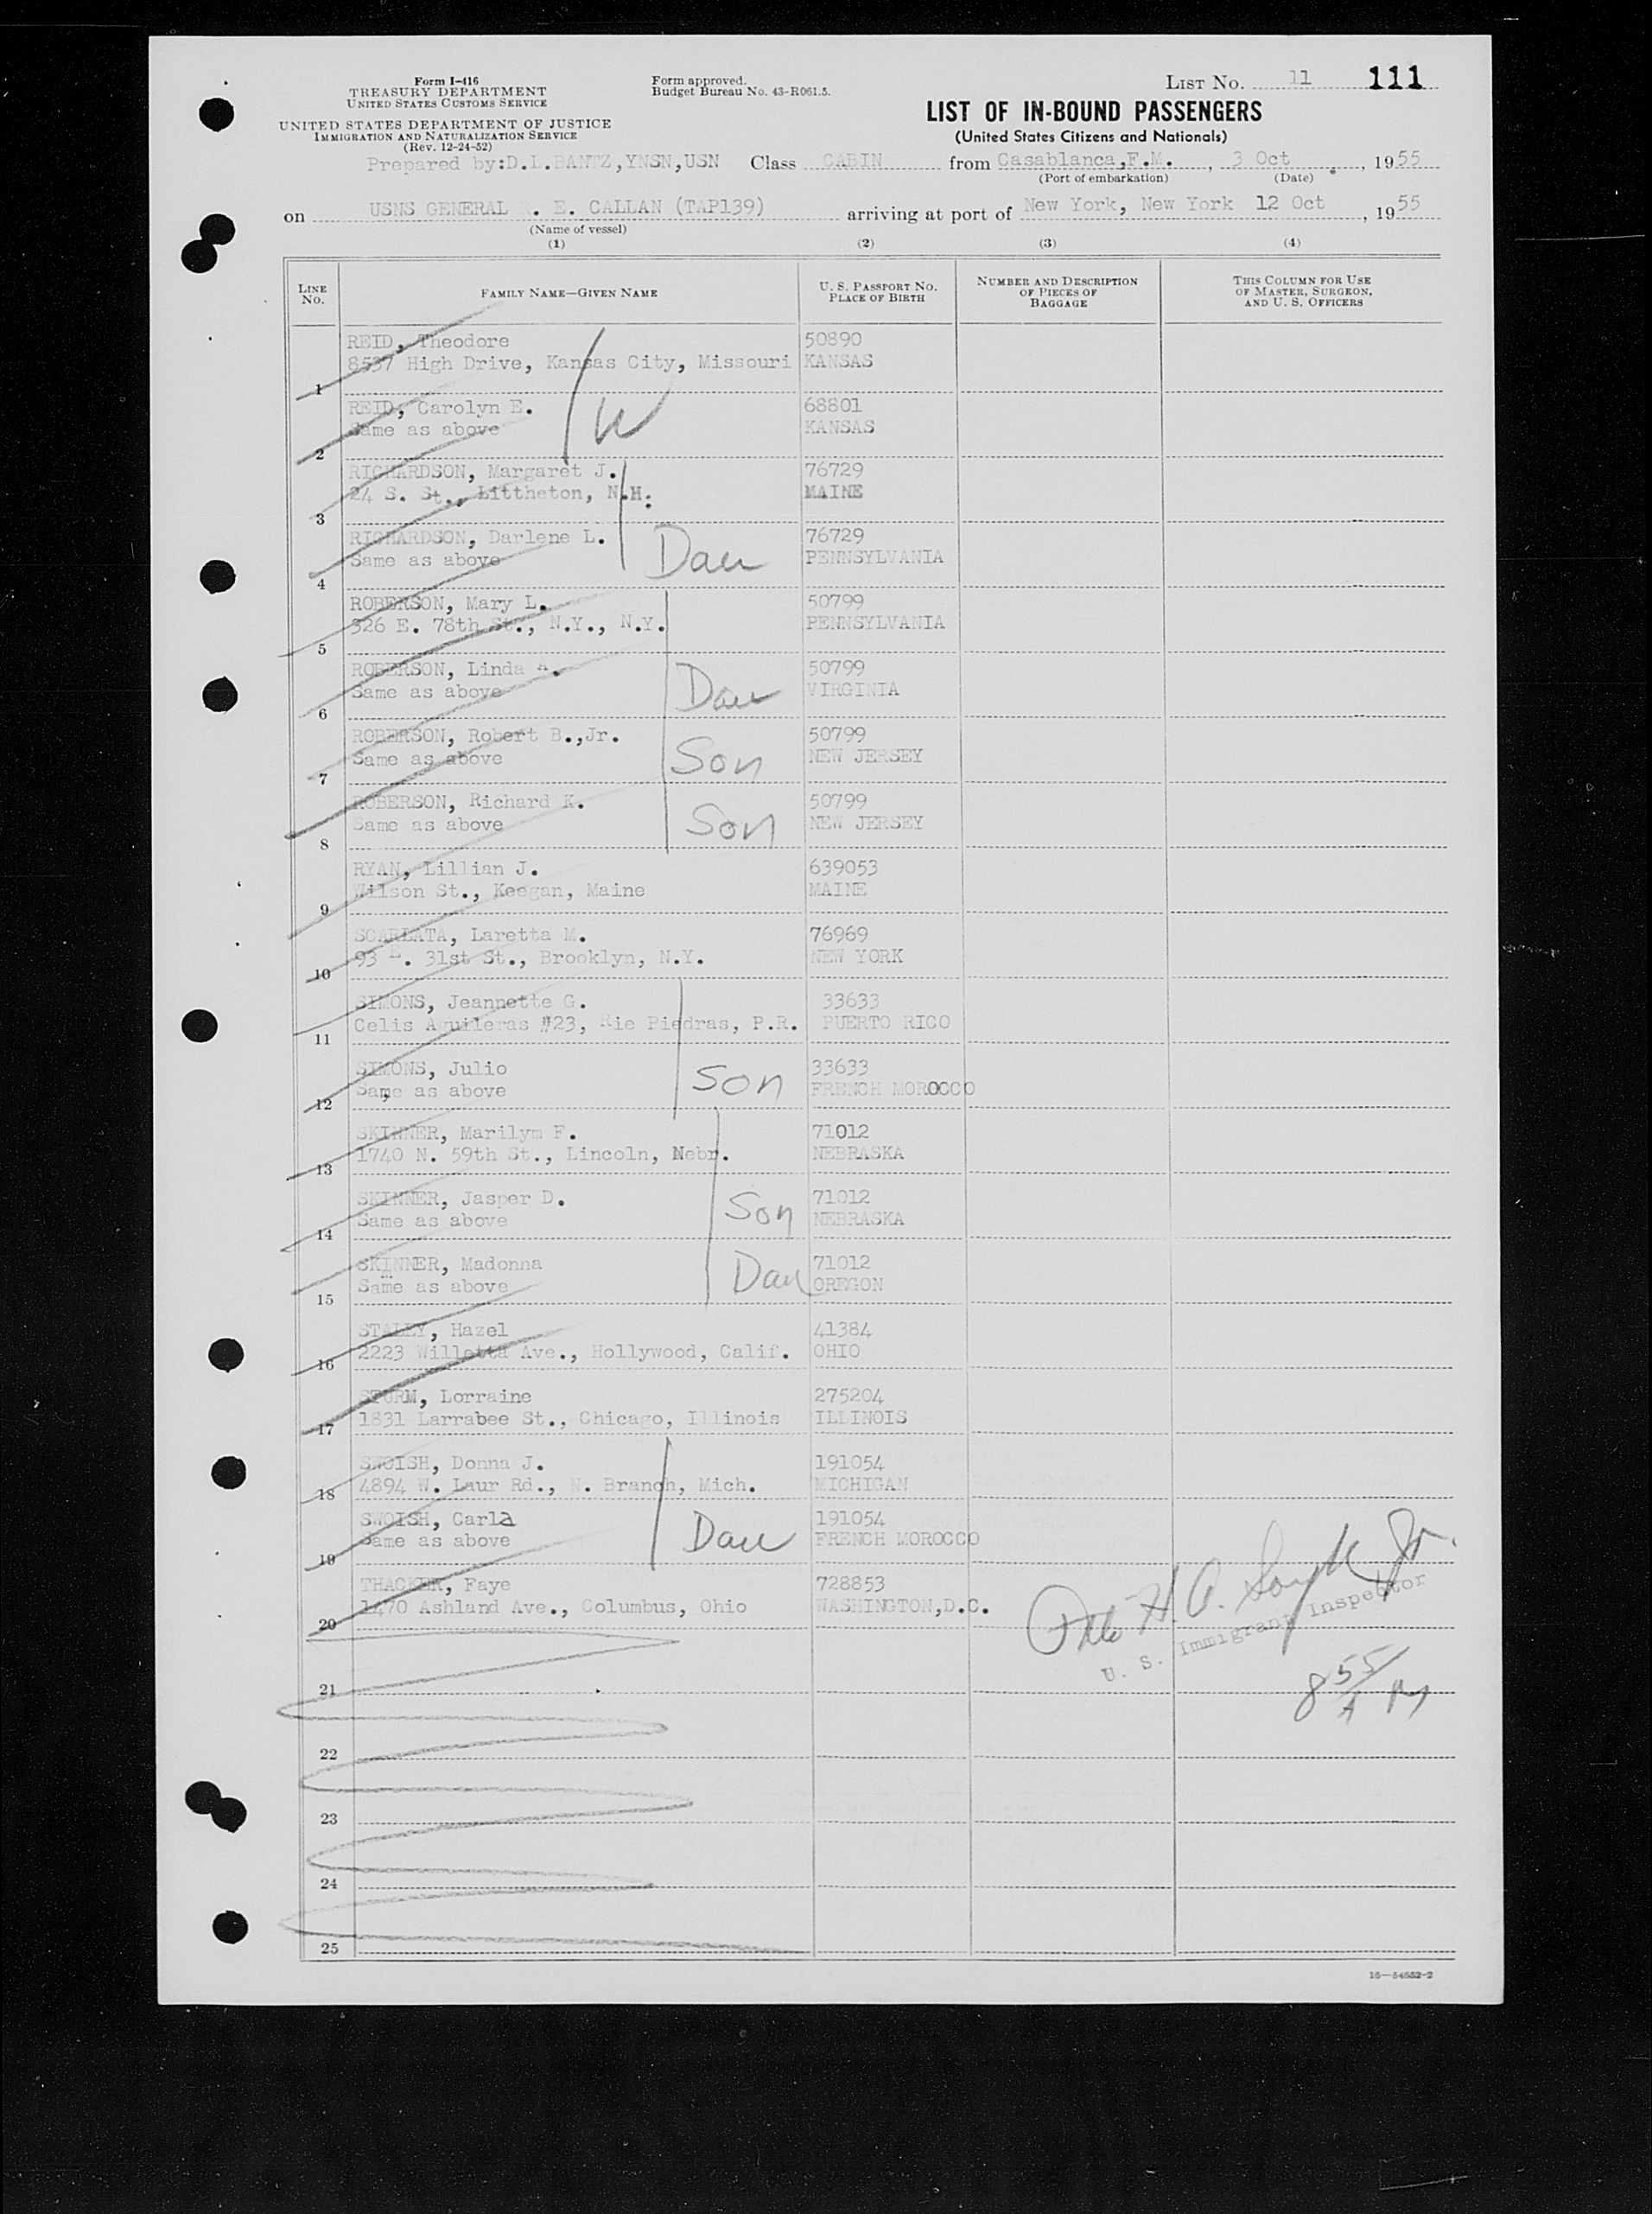 Form I-416
TREASURY DEPARTMENT
UNITED STATES CUSTOMS SERVICE
UNITED STATES DEPARTMENT OF JUSTICE
IMMIGRATION AND NATURALIZATION SERVICE
(Rev. 12-24-52)
Form approved.
Budget Bureau No. 43-R061.5.
LIST No. 11 111
LIST OF IN-BOUND PASSENGERS
(United States Citizens and Nationals)
Prepared by:D.L.BANTZ,YNSN,USN Class CABIN from Casablanca,F.M. , 3 Oct , 1955
(Port of embarkation) (Date)
on USNS GENERAL . E. CALLAN (TAP139) arriving at port of New York, New York 12 Oct , 1955
(Name of vessel)
(1) (2) (3) (4)
LINE No. FAMILY NAME—GIVEN NAME U. S. PASSPORT NO. PLACE OF BIRTH NUMBER AND DESCRIPTION OF PIECES OF BAGGAGE THIS COLUMN FOR USE OF MASTER, SURGEON, AND U. S. OFFICERS
REID, Theodore 50890
8537 High Drive, Kansas City, Missouri KANSAS
1
REID, Carolyn E. 68801
Same as above W KANSAS
2
RICHARDSON, Margaret J. 76729
24 S. St., Littheton, N.H. MAINE
3
RICHARDSON, Darlene L. 76729
Same as above Dau PENNSYLVANIA
4
ROBERSON, Mary L. 50799
326 E. 78th St., N.Y., N.Y. PENNSYLVANIA
5
ROBERSON, Linda A. 50799
Same as above Dau VIRGINIA
6
ROBERSON, Robert B.,Jr. 50799
Same as above Son NEW JERSEY
7
ROBERSON, Richard K. 50799
Same as above Son NEW JERSEY
8
RYAN, Lillian J. 639053
Wilson St., Keegan, Maine MAINE
9
SCARLATA, Laretta M. 76969
93 . 31st St., Brooklyn, N.Y. NEW YORK
10
SIMONS, Jeannette G. 33633
Celis Aguileras #23, Rie Piedras, P.R. PUERTO RICO
11
SIMONS, Julio 33633
Same as above Son FRENCH MOROCCO
12
SKINNER, Marilym F. 71012
1740 N. 59th St., Lincoln, Nebr. NEBRASKA
13
SKINNER, Jasper D. 71012
Same as above Son NEBRASKA
14
SKINNER, Madonna 71012
Same as above Dau OREGON
15
STALEY, Hazel 41384
2223 Willetta Ave., Hollywood, Calif. OHIO
16
STURM, Lorraine 275204
1831 Larrabee St., Chicago, Illinois ILLINOIS
17
SWOISH, Donna J. 191054
4894 W. Laur Rd., N. Branch, Mich. MICHIGAN
18
SWOISH, Carla 191054
Same as above Dau FRENCH MOROCCO
19
THACKER, Faye 728853
1470 Ashland Ave., Columbus, Ohio WASHINGTON,D.C.
20
U. S. Immigrant Inspector
8 55/A M
21
22
23
24
25
16—54652-2